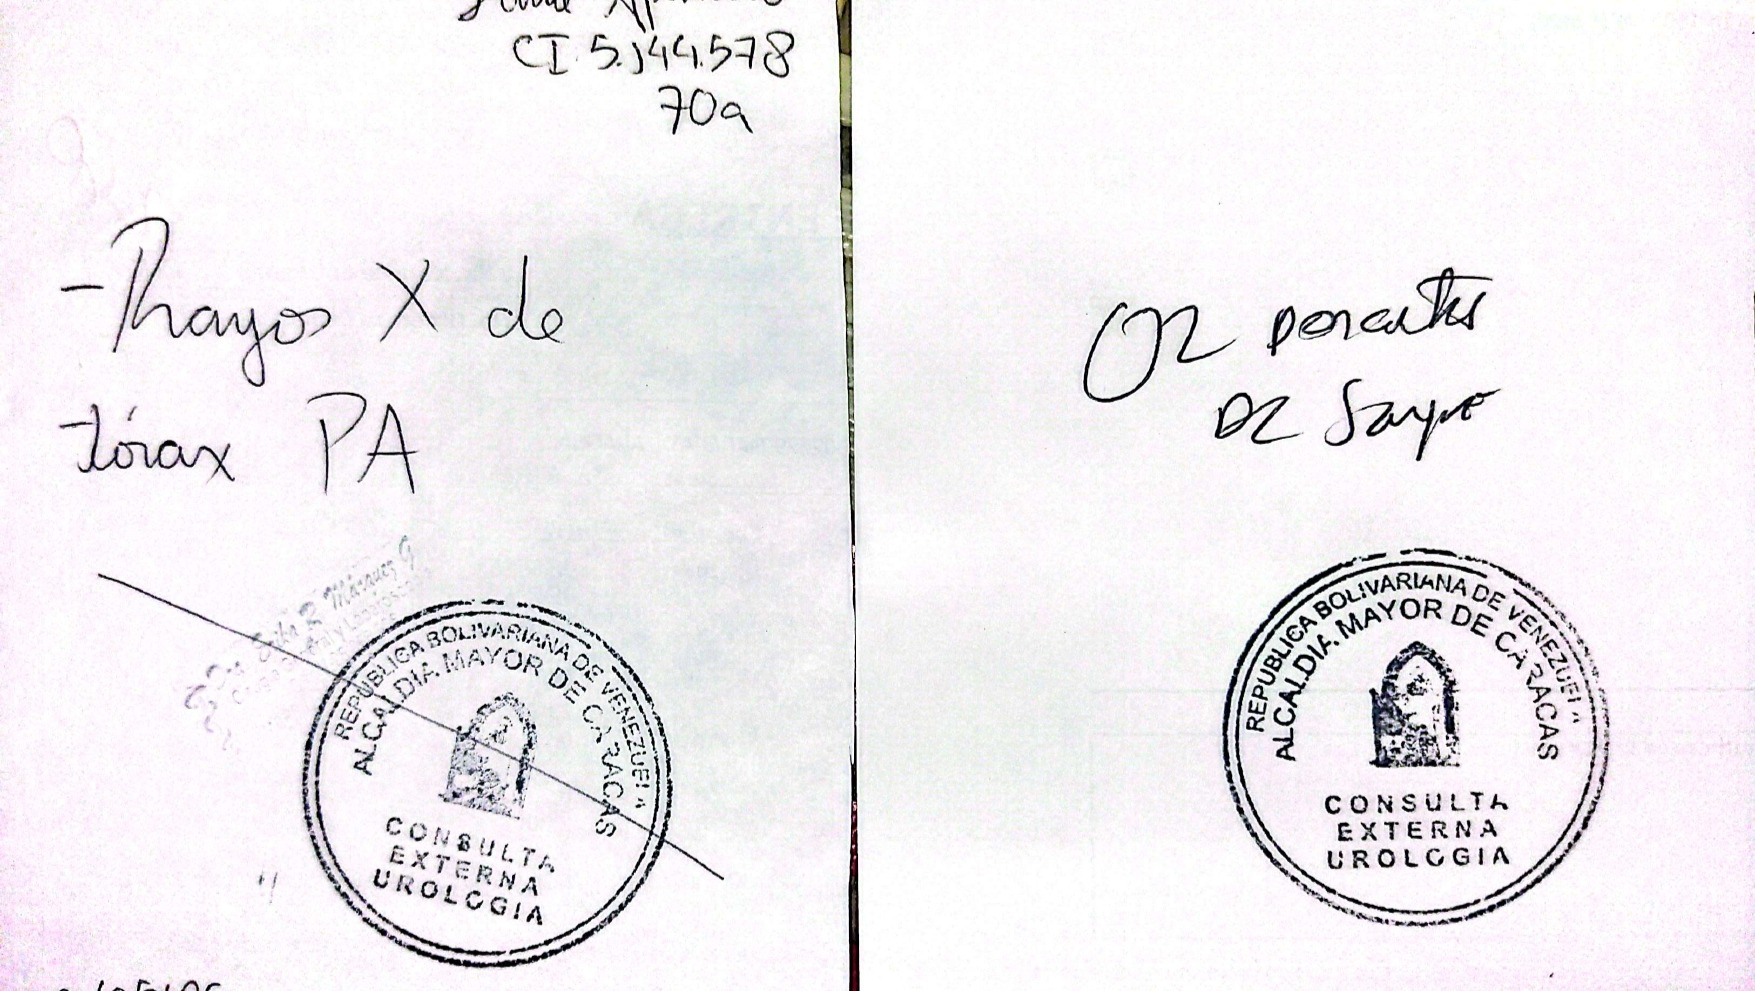 CI. 5.144.578
70a
- Rayos X de
tórax PA
Márquez G
REPUBLICA BOLIVARIANA DE VENEZUELA
ALCALDIA MAYOR DE CARACAS
CONSULTA
EXTERNA
UROLOGIA
02 donantes
De Sangre
REPUBLICA BOLIVARIANA DE VENEZUELA
ALCALDIA MAYOR DE CARACAS
CONSULTA
EXTERNA
UROLOGIA